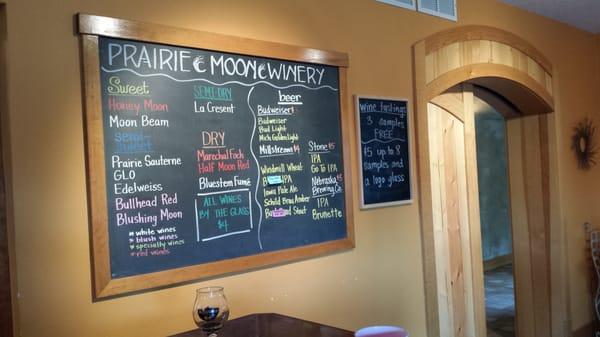 PRAIRIE MOON WINERY
Sweet
Honey Moon
Moon Beam
Semi-Sweet
Prairie Sauterne
GLO
Edelweiss
Bullhead Red
Blushing Moon
* white wines
* blush wines
* specialty wines
* red wines
SEMI-DRY
La Crescent
DRY
Marechal Foch
Half Moon Red
Bluestem Fumé
ALL WINES
BY THE GLASS
$4
beer
Budweiser
Budweiser
Bud Light
Mich Golden Light
Millstream $4
Windmill Wheat
IPA
Iowa Pale Ale
Schild Brau Amber
Stout
Stone $5
IPA
Go To IPA
Nebraska
Brewing Co.
IPA
Brunette
wine tastings
3 samples
FREE
$5 up to 8
samples
and a
logo glass